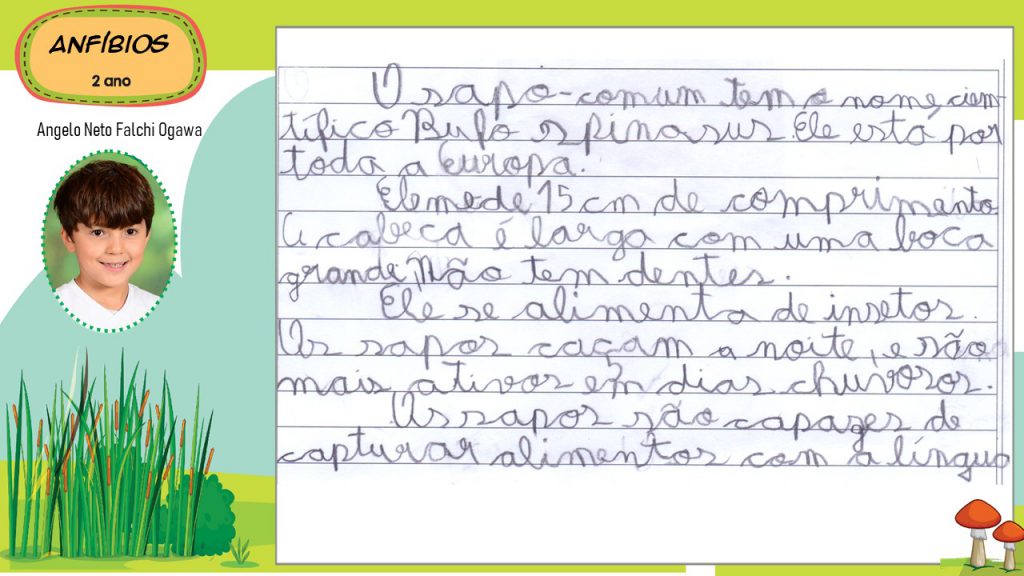 ANFÍBIOS
2 ano
Angelo Neto Falchi Ogawa
O sapo-comum tem o nome cien-
tífico Bufo spinosus. Ele está por
toda a Europa.
Ele mede 15 cm de comprimento
A cabeca é larga com uma boca
grande, Não tem dentes.
Ele se alimenta de insetos.
Os sapos caçam a noite, e são
mais ativos em dias chuvosos.
Os sapos são capazes de
capturar alimentos com a língua